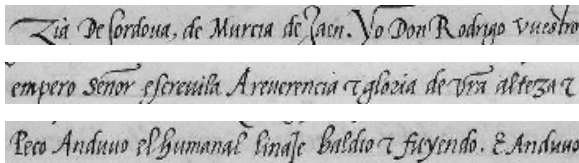 zia De Cordoua, de Murcia de Jaen. Yo Don Rodrigo vuestro
empero señor escreuila A reuerencia τ gloria de vra alteza τ
Peco Anduuo el humanal linaje baldio τ fuyendo. E Anduuo